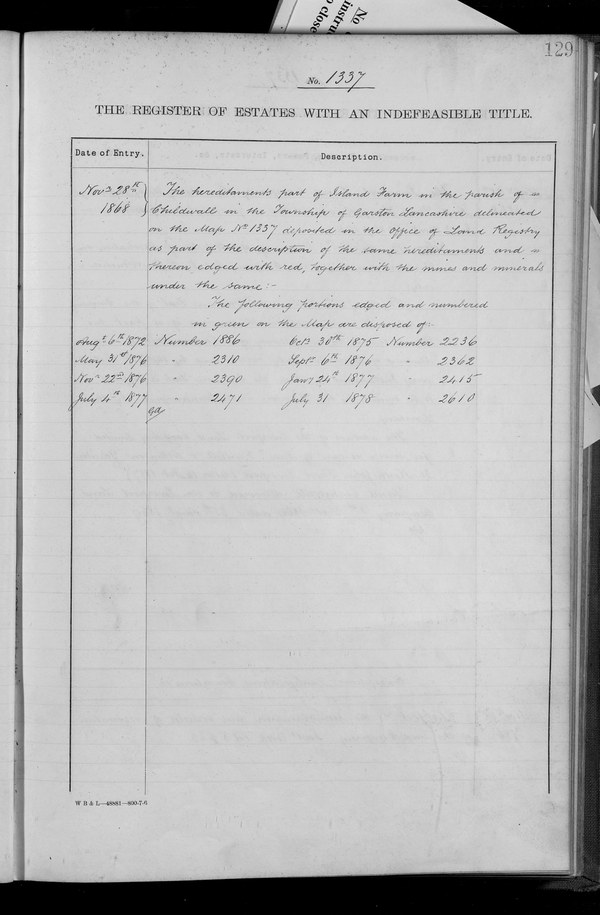 No.
instru
o close
129
No. 1337
THE REGISTER OF ESTATES WITH AN INDEFEASIBLE TITLE.
Date of Entry. Description.
Novr 28th 1868 The hereditaments part of Island Farm in the parish of
Childwall in the Township of Garston Lancashire delineated
on the Map No 1337 deposited in the office of Land Registry
as part of the description of the same hereditaments and
thereon edged with red, together with the mines and minerals
under the same:-
The following portions edged and numbered
in green on the Map are disposed of
Augt 6th 1872 Number 1886 Octr 30th 1875 Number 2236
May 31st 1876 " 2310 Septr 6th 1876 " 2362
Novr 22nd 1876 " 2390 Jany 24th 1877 " 2415
July 4th 1877 " 2471 July 31 1878 " 2610
W B & L—48881—800-7-6